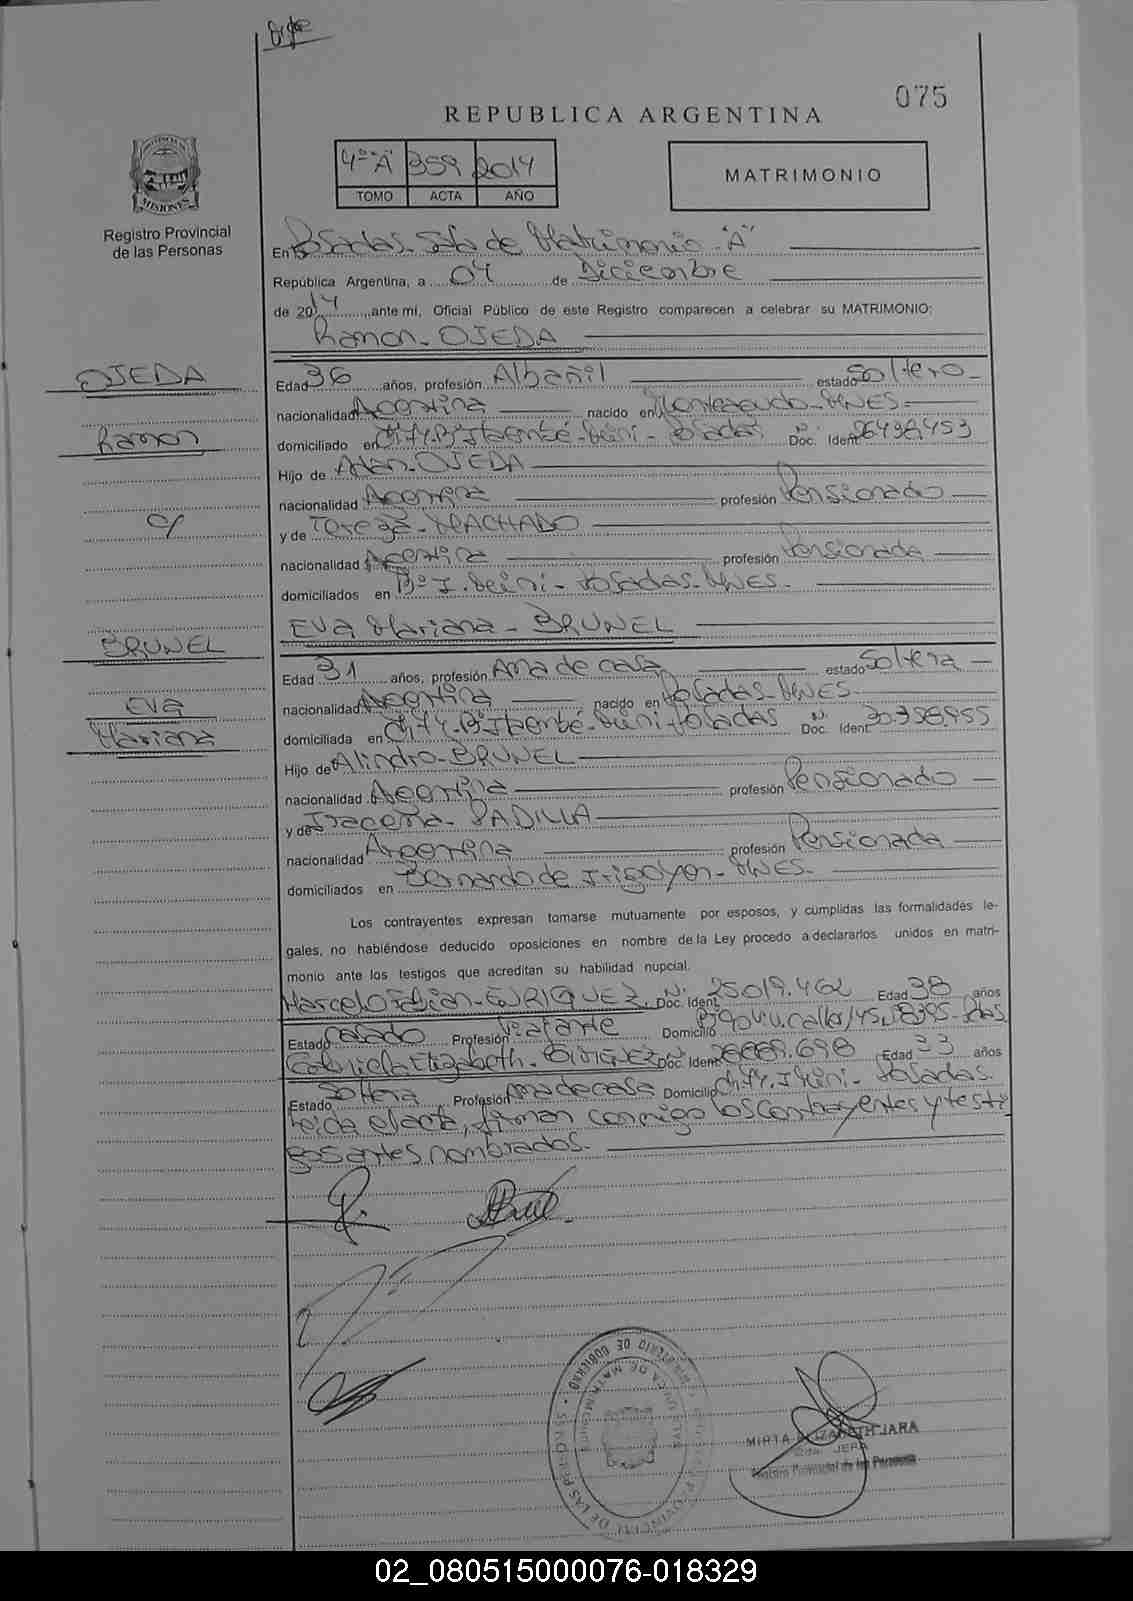 075
REPUBLICA ARGENTINA
4º "A" 359 2014
TOMO ACTA AÑO
MATRIMONIO
MISIONES
Registro Provincial
de las Personas
En Posadas - Sala de Matrimonio "A"
República Argentina, a 04 de Diciembre
de 2014 ante mí, Oficial Público de este Registro comparecen a celebrar su MATRIMONIO:
Ramon - OJEDA
OJEDA
Ramon
c/
BRUNEL
EVA
Mariana
Edad 36 años, profesión Albañil estado Soltero
nacionalidad Argentina nacido en Monteagudo - MNES
domiciliado en Ch. 14. Bº Itaembé - Miní - Posadas Nº Doc. Ident 26.438.453
Hijo de Adan - OJEDA
nacionalidad Argentina profesión Pensionado
y de Tereza - MACHADO
nacionalidad Argentina profesión Pensionada
domiciliados en Bº I. Miní - Posadas - MNES -
EVA Mariana - BRUNEL
Edad 31 años, profesión Ama de casa estado Soltera
nacionalidad Argentina nacido en Posadas - MNES -
domiciliada en Bº Itaembé - Miní - Posadas Nº Doc. Ident 30.358.955
Hijo de Alindro - BRUNEL
nacionalidad Argentina profesión Pensionado
y de Iracema - PADILLA
nacionalidad Argentina profesión Pensionada
domiciliados en Bernardo de Irigoyen - MNES -
Los contrayentes expresan tomarse mutuamente por esposos, y cumplidas las formalidades le-
gales, no habiéndose deducido oposiciones en nombre de la Ley procedo a declararlos unidos en matri-
monio ante los testigos que acreditan su habilidad nupcial.
Marcelo Fabian - Nº Doc. Ident 25.019.462 Edad 38 años
Estado Casado Profesión Domicilio
Gabriela Elizabeth - Nº Doc. Ident Edad 33 años
Estado Soltera Profesión Ama de casa Domicilio I. Miní - Posadas -
Leida el acta, firman conmigo los contrayentes y testi
gos antes nombrados.
MIRTA ELIZABETH JARA
JEFA
Registro Provincial de las Personas
02_080515000076-018329